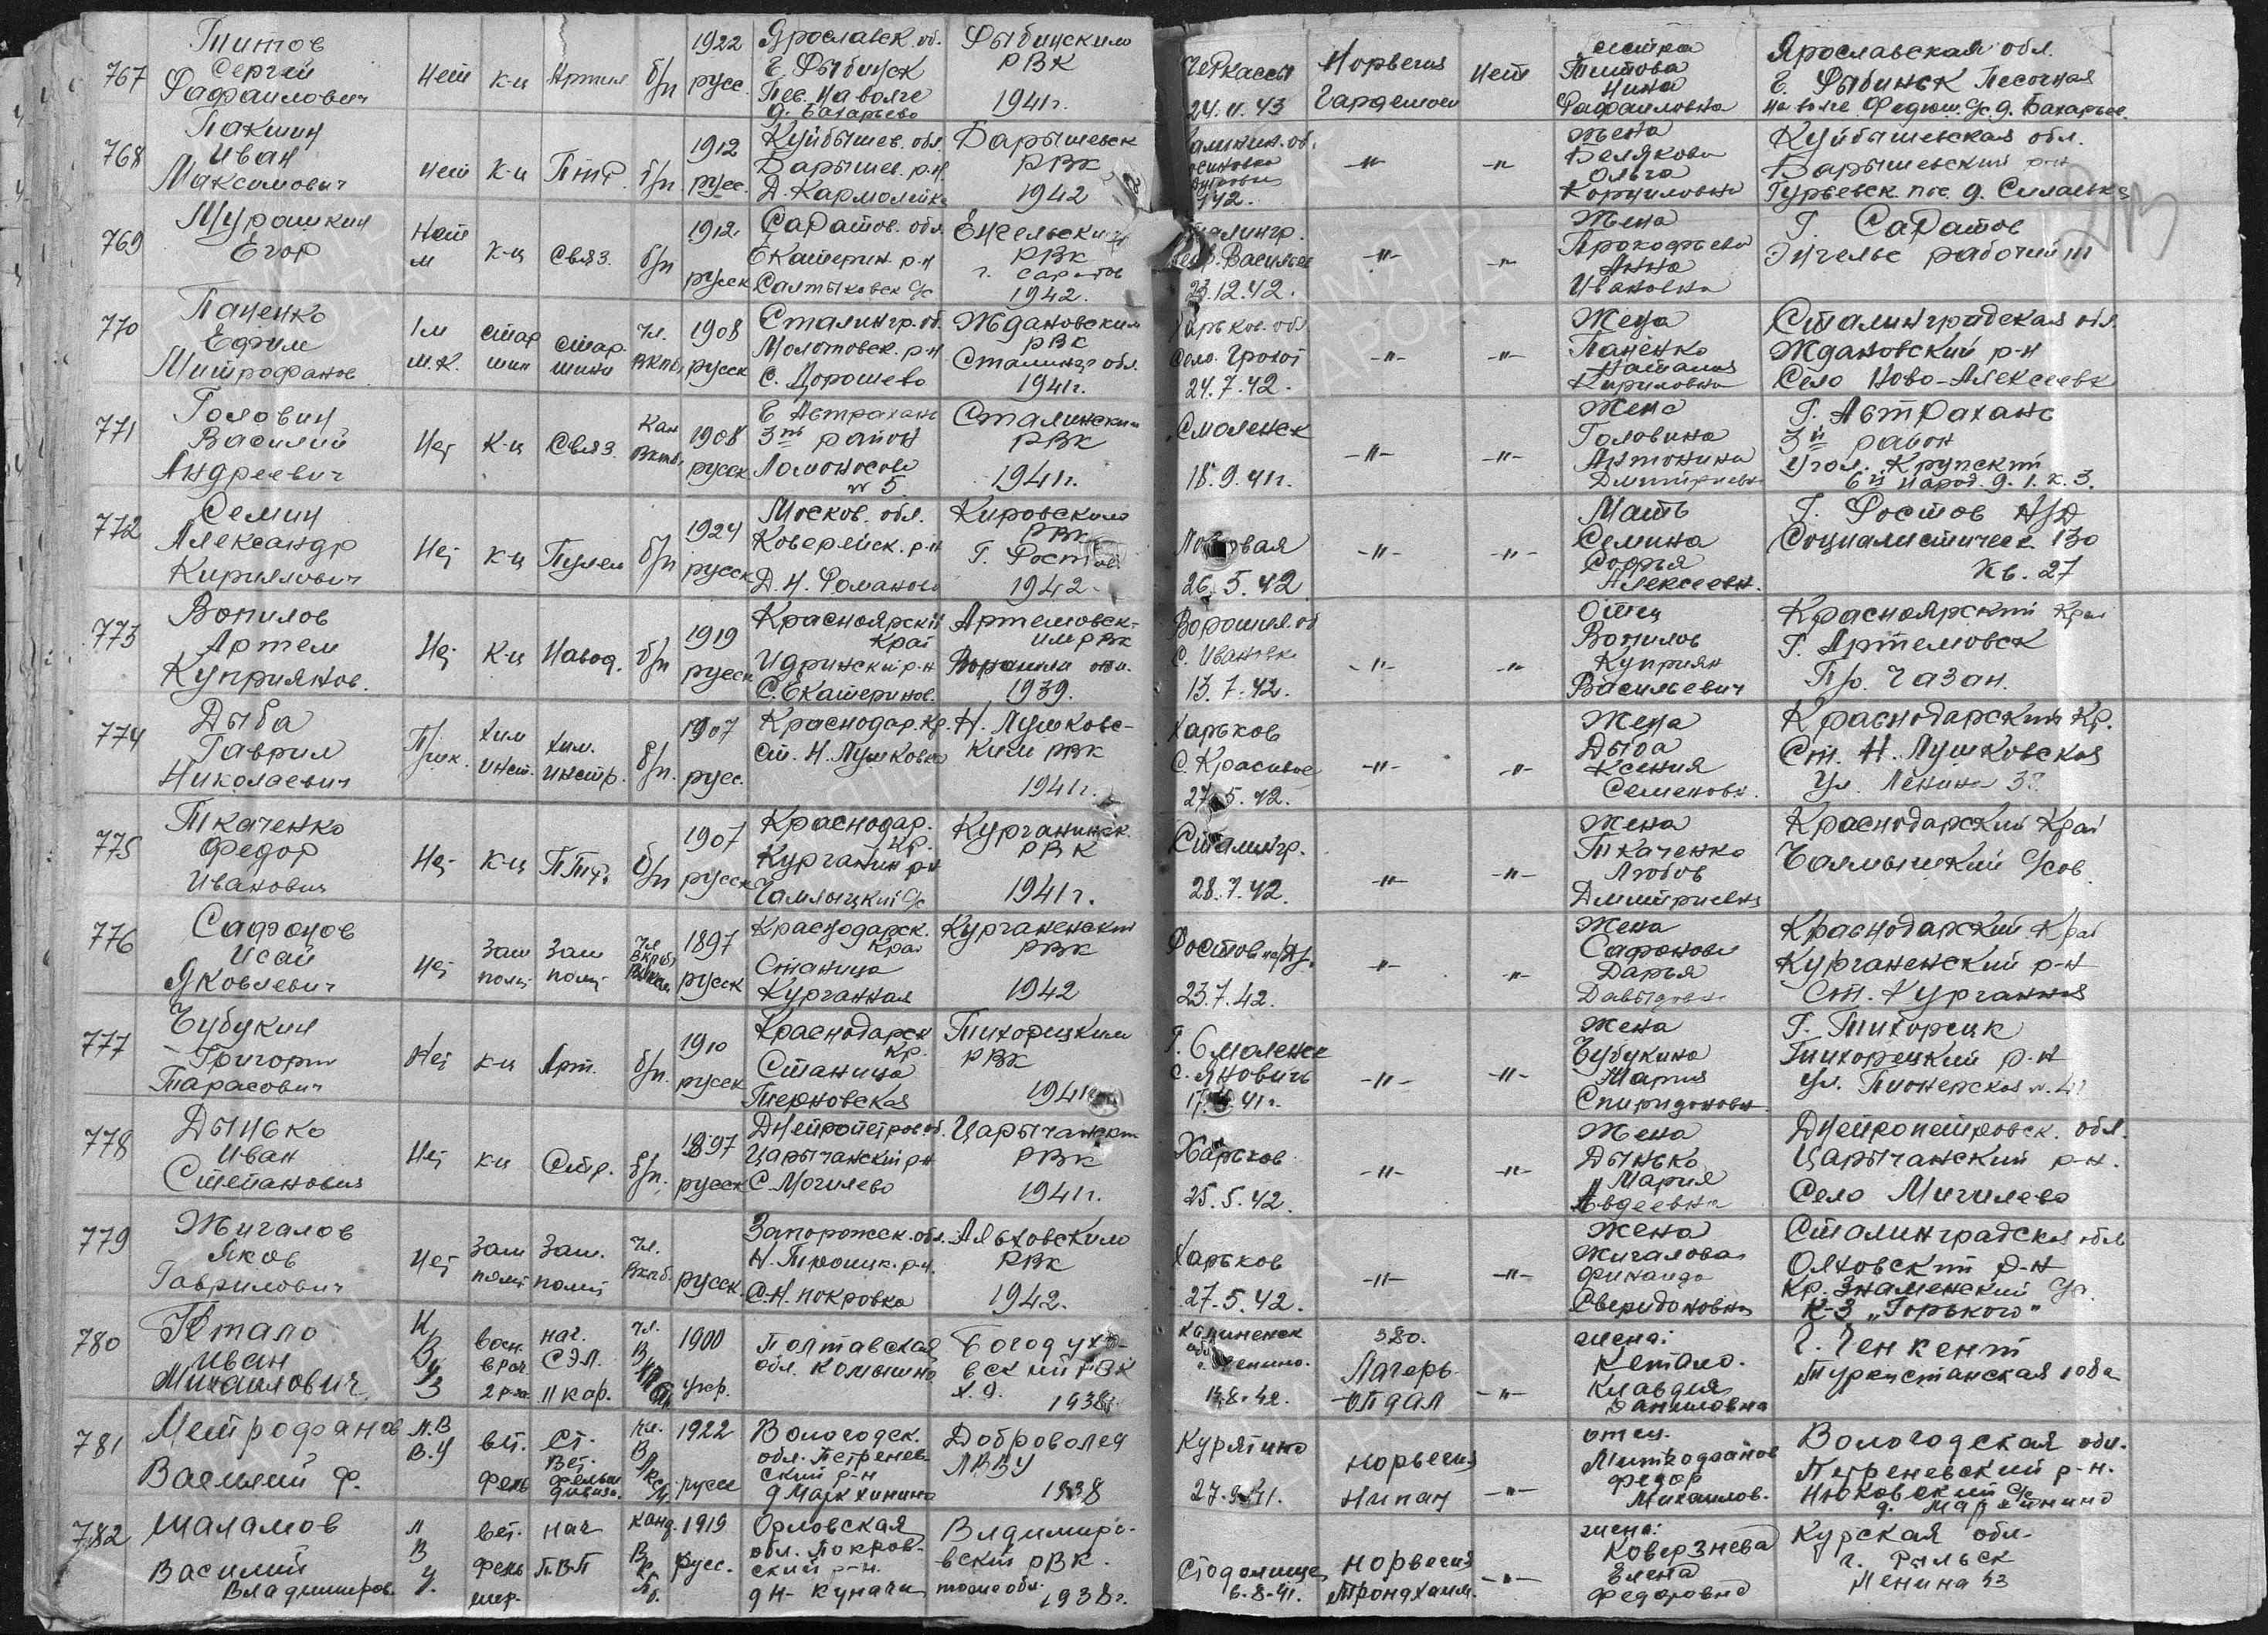 767 Титов Сергей Рафаилович нет к-ц Артил б/п 1922 русс. Ярославск. об. г. Рыбинск Пес. на волге д. Бахарьево Рыбинским РВК 1941г. Черкассы 24.11.43 Норвегия Гардемоен нет сестра Титова Нина Рафаиловна Ярославская обл. г. Рыбинск Песочная на волге Федюш. с/с д. Бахарьев.
768 Пакшин Иван Максимович нет к-ц ПТР. б/п 1912 русс. Куйбышев. обл. Барышев. р-н Д. Кармалейка Барышевск РВК 1942 Калинин. об. 42. -"- -"- жена Белякова Ольга Корниловна Куйбышевская обл. Барышевский р-н Гурьевск. пос. д. Силаевка
769 Мурашкин Егор Нет м к-ц Связ. б/п 1912 русск Саратов. обл. Екатерин. р-н Салтыковск с/с Енгельским РВК г. Саратов 1942. Сталингр. Васильев 23.12.42. -"- -"- Жена Прокофьева Анна Ивановна Г. Саратов Энгельс рабочий
770 Паненко Ефим Митрофанов 1м м.к. стар шин стар. шина чл. ВКПб, 1908 русск Сталингр. об. Молотовск. р-н С. Дорошево Ждановским РВК Сталингр обл. 1941г. Харьков. обл. Село. 24.7.42. -"- -"- Жена Паненко Наталия Кириловна Сталинградская обл. Ждановский р-н Село Ново-Алексеевк
771 Головин Василий Андреевич Нет к-ц Связ. Кан ВКПб, 1908 русск г. Астрахань 3й район Ломоносова № 5 Сталинским РВК 1941г. Смоленск 18.9.41г. -"- -"- Жена Головина Антонина Дмитриевн Г. Астрахань 3й район Угол. Крупский 6й народ. д. 1. к. 3.
772 Семин Александр Кириллович Нет к-ц Пулем б/п 1924 русск Москов. обл. Д. Н. Романово Кировским РВК Г. Ростов 1942. Лозовая 26.5.42 -"- -"- Мать Семина Софья Алексеевн. Г. Ростов н/Д Социалистическ 130 кв. 27
773 Вопилов Артем Куприянов. Нет к-ц Навод. б/п 1919 русск. Красноярский Край Идринский р-н С. Екатеринов. Артемовск- им РВК 1939. Ворошил. об С. Ивановка 13.7.42. -"- -"- Отец Вопилов Куприян Васильевич Красноярский Край Г. Артемовск
774 Дыба Гаврил Николаевич хим инст. хим. инстр. б/п. 1907 русс. Краснодар. Кр. ст. Н. Пушковка Н. Пушковс- ким РВК 1941г. Харьков С. Красивое 27.5.42. -"- -"- Жена Дыба Ксения Семеновн. Краснодарский Кр. Ст. Н. Пушковская ул. Ленина
775 Ткаченко Федор Иванович Нет к-ц б/п 1907 русск Краснодар. Кр. Курганин р-н Чамлыцкий с/с Курганинск РВК 1941г. Сталингр. 28.7.42. -"- -"- Жена Ткаченко Любов Дмитриевна Краснодарский Край Чамлыцкий с/сов.
776 Сафонов Исай Яковлевич Нет Зам полит Зам полит чл ВКПб 1897 русск Краснодарск. Край Станица Курганная Курганенским РВК 1942 Ростов на/Д. 23.7.42. -"- -"- Жена Сафонова Дарья Давыдовна Краснодарский Край Курганенский р-н Ст. Курганная
777 Чубукин Григорий Тарасович Нет к-ц Арт. б/п. 1910 русск Краснодарск Кр. Станица Терновская Тихорецким РВК 1941 г. Смоленск С. Янович 17. 41г. -"- -"- Жена Чубукина Мария Спиридоновн. Г. Тихорецк Тихорецкий р-н ул. Пионерская № 41
778 Дынько Иван Степанович Нет к-ц Стр. б/п. 1897 русск Днепропетров. об. Царычанский р-н С. Могилево Царычанским РВК 1941г. Харьков 25.5.42. -"- -"- Жена Дынько Мария Авдеевна Днепропетровск. обл. Царычанский р-н. Село Могилево
779 Жигалов Яков Гаврилович Нет Зам полит Зам. полит чл. ВКПб. русск. Запорожск. обл. Н. Троицк. р-н. С.Н. покровка Альховским РВК 1942. Харьков 27.5.42. -"- -"- Жена Жигалова Сверидоновна Сталинградская обл Олховский р-н Кр. Знаменский с/с. К-З „Горького"
780 Кетало Иван Михаилович К. В. У. З воен. врач 2 р-га нач. СЭЛ. п кар. чл. В. К. П. б. 1900 укр. Полтавская обл. Комышна Богодухо- вский РВК Х.о. 1938г Калиненск обл г. Ленино. 13.8.42. 380. Лагерь. -Опдал -"- жена: Кетало. Клавдия Даниловна г. Ченкент Туркистанская 108а
781 Метрофанов Василий Ф. Л.В В.У вет. фель ст. вет. фельд дивизи. 1922 русск Вологодск. обл. Петренев- ский р-н д Мархинино Доброволец ЛВВУ 1938 Курятино 27.9.41. Норвегия Нипан -"- отец. Митрофанов Федор Михаилов. Вологодская обл. Петреневский р-н. Нюковский с/с д. Мархинино
782 Шаламов Василий Владимиров. Л В У. вет. фель шер. нач П.В.П канд. В К П б. 1919 русс. Орловская обл. Покров- ский р-н. д Н- Куначи Владимиро- вский РВК. тоже обл. 1938г. Стодолище 6.8.41. Норвегия Трондхаим. -"- жена: Коверзнева Елена Федоровна Курская обл. г. Рыльск Ленина 53